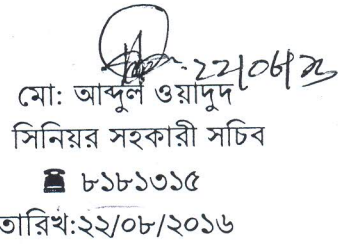 মো: আব্দুল ওয়াদুদ
সিনিয়র সহকারী সচিব
☎ ৮১৮১৩১৫
তারিখ:২২/০৮/২০১৬